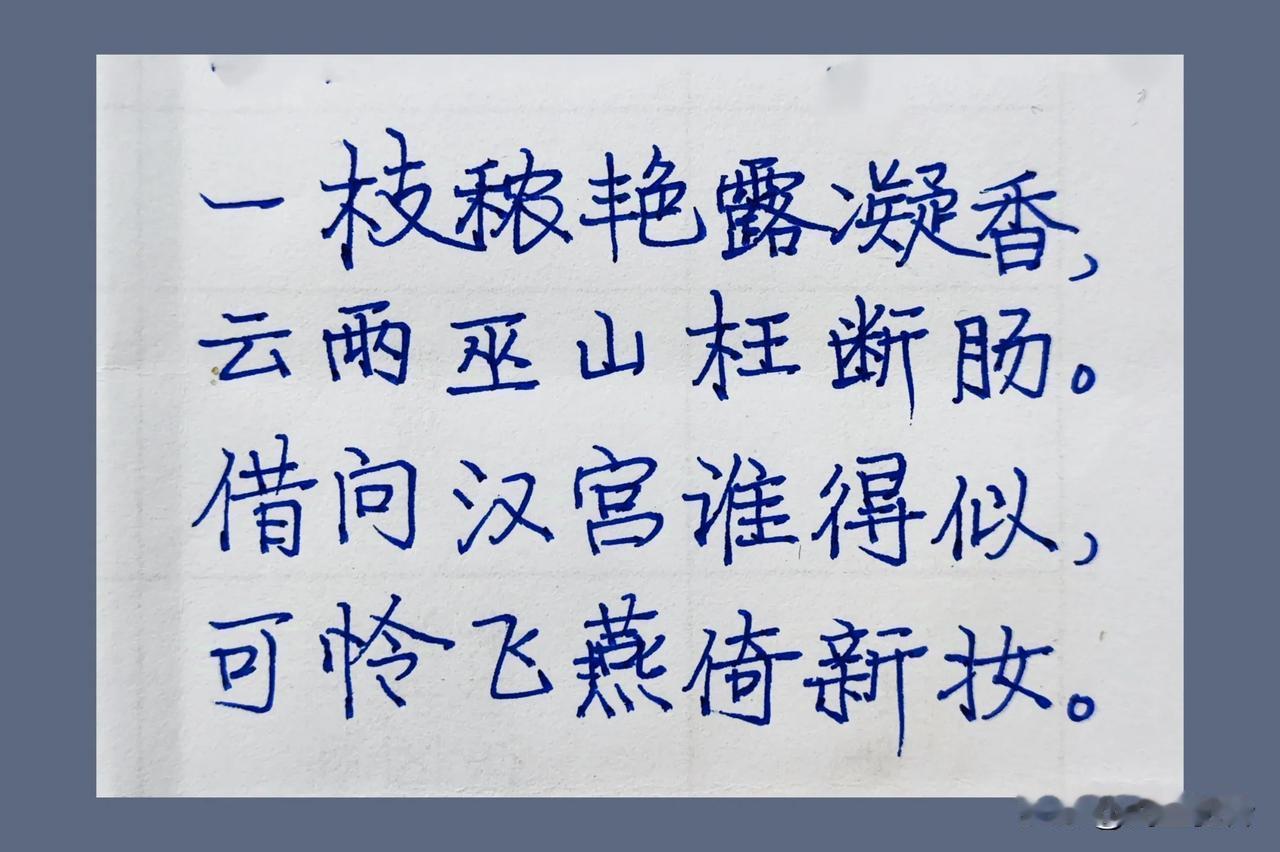 一枝秾艳露凝香，
云雨巫山枉断肠。
借问汉宫谁得似，
可怜飞燕倚新妆。